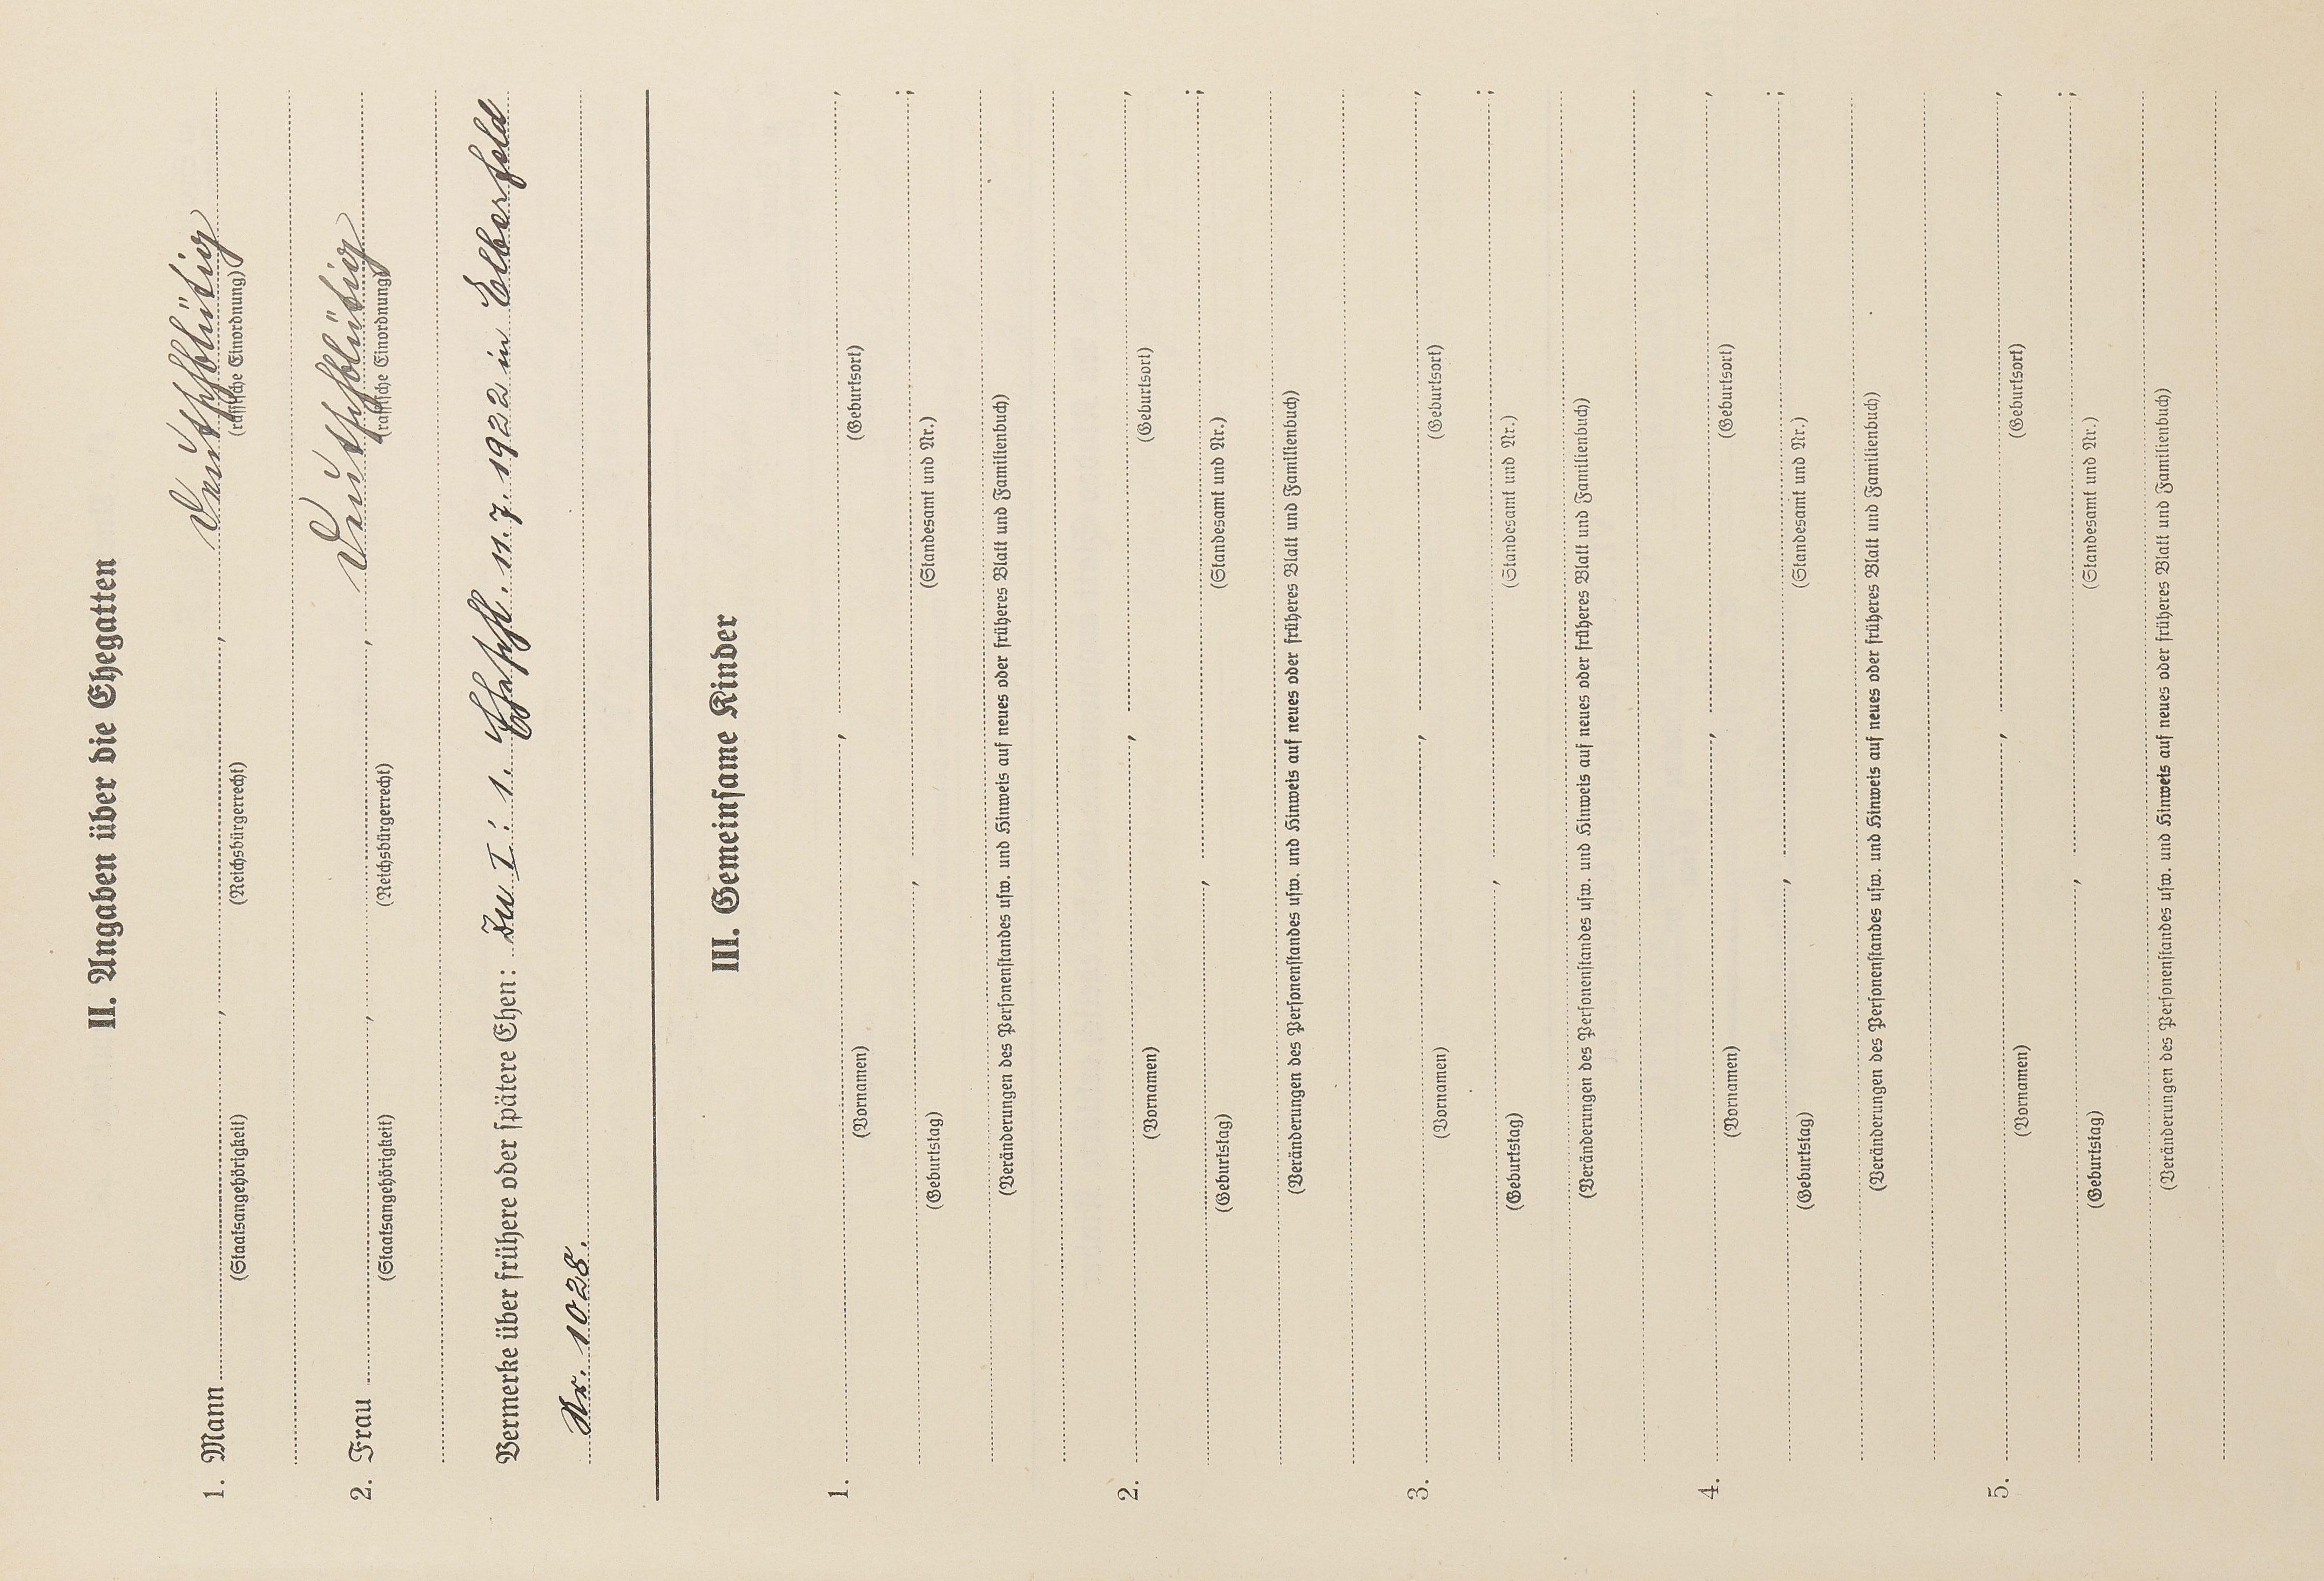 II. Angaben über die Ehegatten
1. Mann , , Deutschblütig
(Staatsangehörigkeit) (Reichsbürgerrecht) (rassische Einordnung)
2. Frau , , Deutschblütig
(Staatsangehörigkeit) (Reichsbürgerrecht) (rassische Einordnung)
Vermerke über frühere oder spätere Ehen: Zu I: 1. Ehesch. 11.7.1922 in Elberfeld
Nr. 1028.
III. Gemeinsame Kinder
1. , ,
(Vornamen) (Geburtsort)
, ;
(Geburtstag) (Standesamt und Nr.)
(Veränderungen des Personenstandes usw. und Hinweis auf neues oder früheres Blatt und Familienbuch)
2. , ,
(Vornamen) (Geburtsort)
, ;
(Geburtstag) (Standesamt und Nr.)
(Veränderungen des Personenstandes usw. und Hinweis auf neues oder früheres Blatt und Familienbuch)
3. , ,
(Vornamen) (Geburtsort)
, ;
(Geburtstag) (Standesamt und Nr.)
(Veränderungen des Personenstandes usw. und Hinweis auf neues oder früheres Blatt und Familienbuch)
4. , ,
(Vornamen) (Geburtsort)
, ;
(Geburtstag) (Standesamt und Nr.)
(Veränderungen des Personenstandes usw. und Hinweis auf neues oder früheres Blatt und Familienbuch)
5. , ,
(Vornamen) (Geburtsort)
, ;
(Geburtstag) (Standesamt und Nr.)
(Veränderungen des Personenstandes usw. und Hinweis auf neues oder früheres Blatt und Familienbuch)